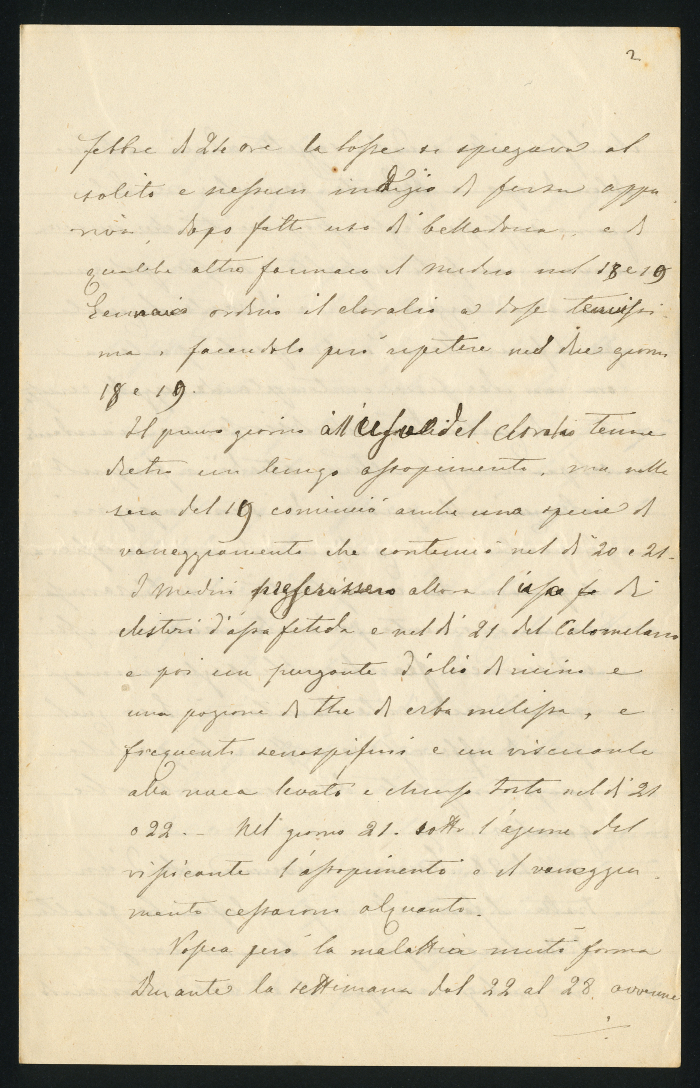 2
febbre di 24 ore la tosse si spiegava al
solito e nessun indizio di fersa appa
riva, dopo fatto uso di belladonna, e di
qualche altro farmaco il medico nel 18 e 19
Gennaio ordinò il cloralio a dose tenuissi
ma, facendolo però ripetere nei due giorni
18 e 19.
Il primo giorno all'uso del cloralio tenne
dietro un lungo assopimento, ma nella
sera del 19 cominciò anche una specie di
vaneggiamento che continuò nel dì 20 e 21.
I medici allora l'uso di
clisteri d'assafetida e nel dì 21 del Calomelano
e poi un purgante d'olio di ricino e
una pozione di the di erba melissa, e
frequenti senapismi e un viscicante
alla nuca levato e chiuso tosto nel dì 21
o 22. — Nel giorno 21. sotto l'azione del
vissicante l'assopimento e il vaneggia
mento cessarono alquanto.
però la malattia mutò forma
Durante la settimana dal 22 al 28. avvenne